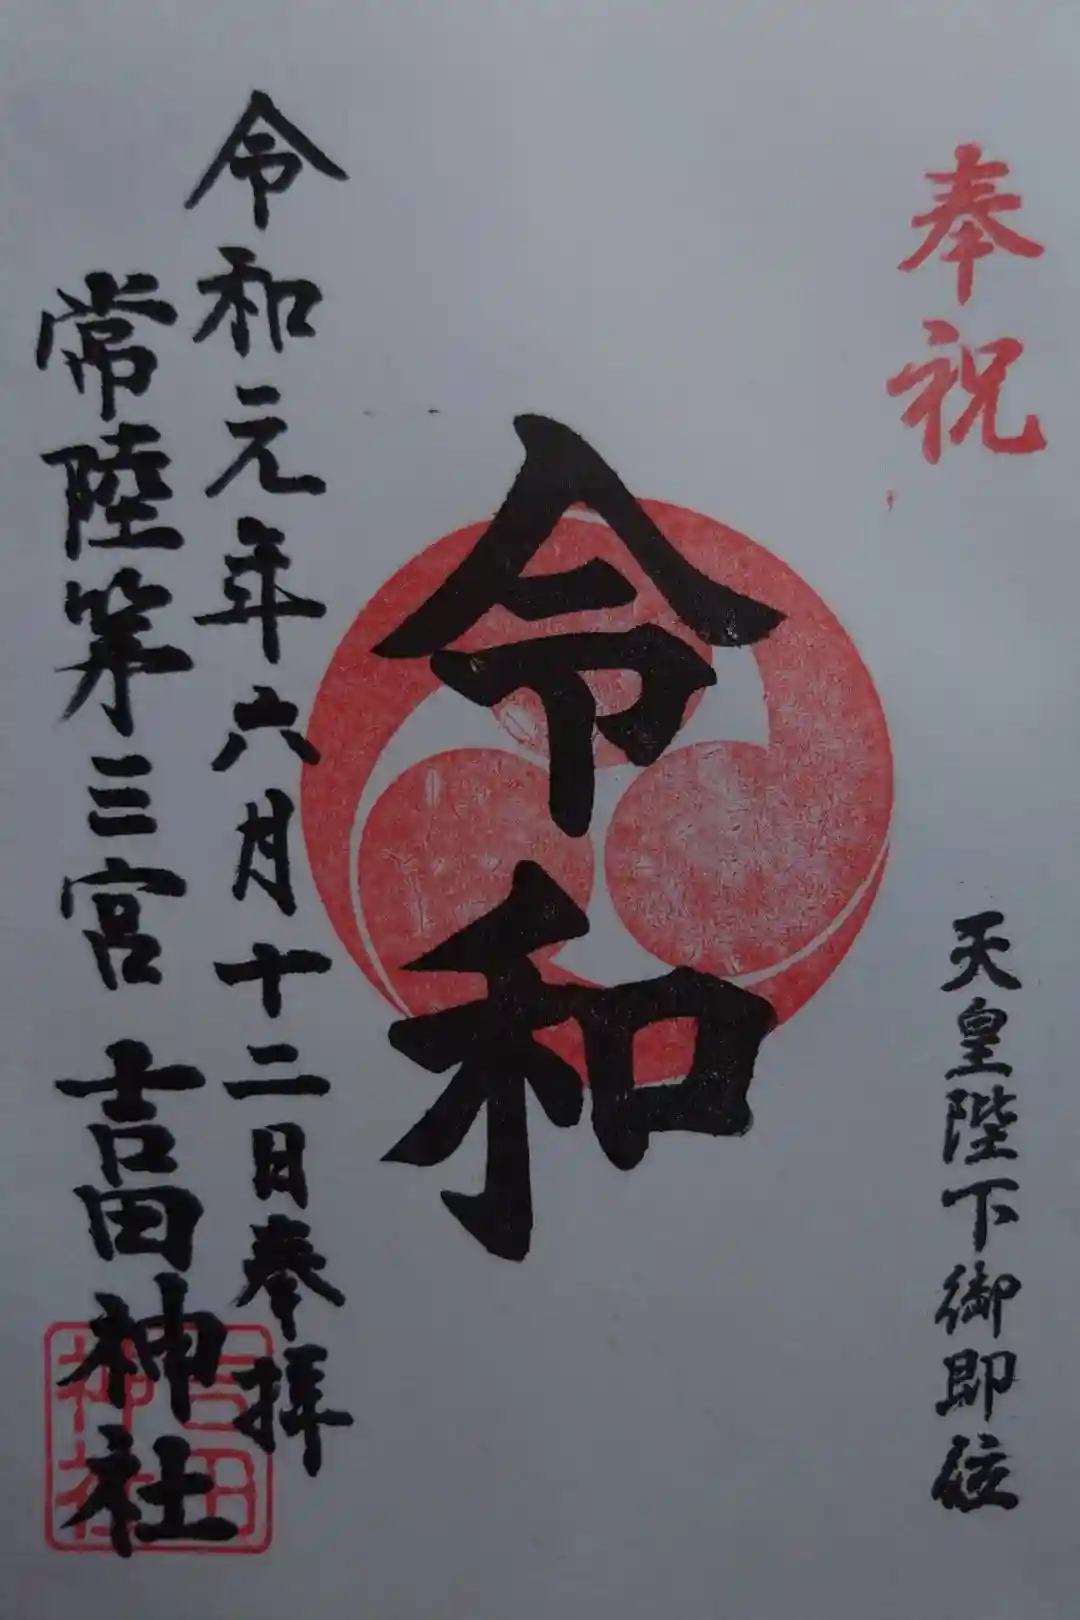 奉祝
天皇陛下御即位
令和
令和元年六月十二日奉拝
常陸第三宮 吉田神社
吉田
神社